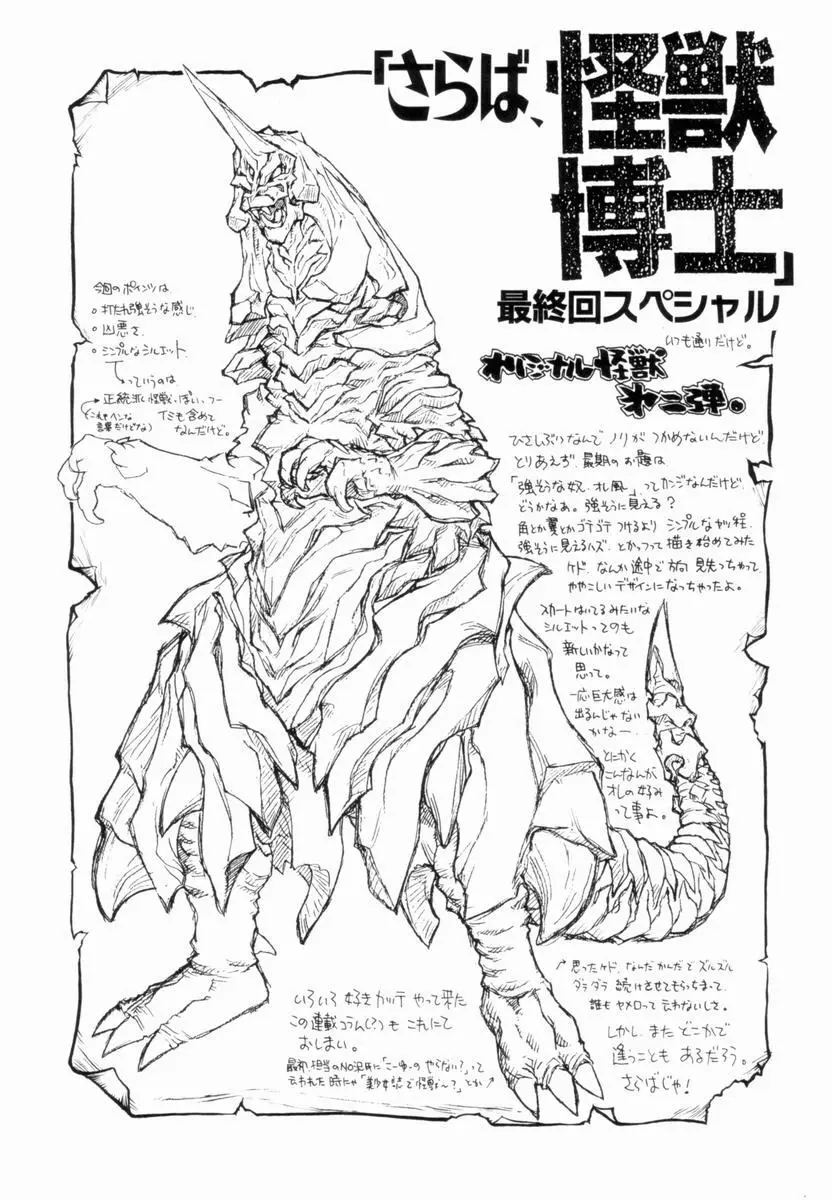 「さらば、怪獣
博士」
最終回スペシャル
いつも通りだけど。
オリジナル怪獣
第二弾。
今回のポインツは
。打たれ強そうな感じ
。凶悪さ
。シンプルなシルエット
っていうのは
→正統派く怪獣っぽい、つー
(これもヘンな
言葉だけどな)
イミも含めて
なんだけど。
ひさしぶりなんでノリがつかめないんだけど
とりあえず最期のお題は
「強そうな奴、オレ風」ってカンジなんだけど
どうかなあ。強そうに見える?
角とか翼とかゴテゴテつけるよりシンプルなヤツ程
強そうに見えるハズ、とかつって描き始めてみた
ケド、なんか途中で方向見失っちゃって
ややこしいデザインになっちゃったよ。
スカートはいてるみたいな
シルエットってのも
新しいかなって
思って。
一応巨大感は
出るんじゃない
かなー
とにかく
こんなんが
オレの好み
って事よ。
いろいろ好きカッテやって来た
この連載コラム(?)もこれにて
おしまい。
最初、担当のNO沢氏に「こーゆーのやらない?」って
云われた時にゃ「美少女誌で怪獣ぅ〜?」とか
思ったケド、なんだかんだでズルズル
ダラダラ続けさせてもらっちまって、
誰もヤメロって云わないしさ。
しかし、またどこかで
逢うこともあるだろう。
さらばじゃ!